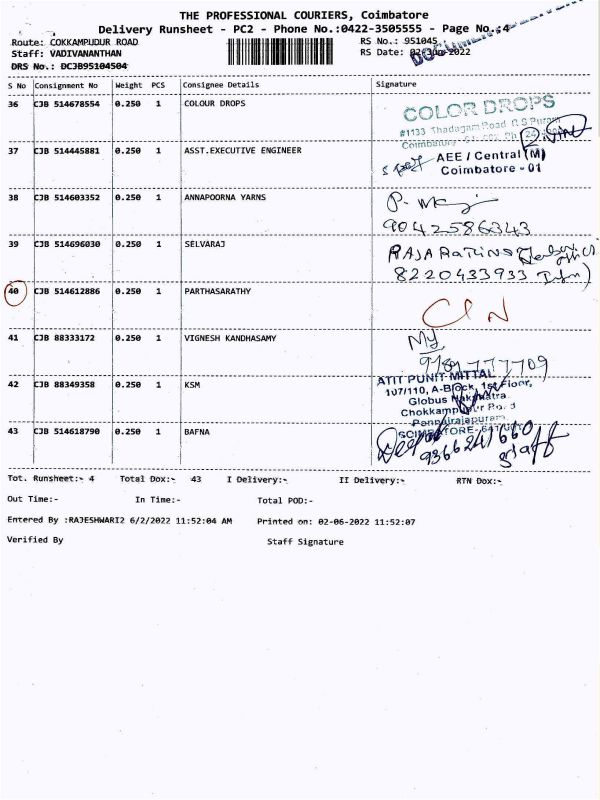 THE PROFESSIONAL COURIERS, Coimbatore
Delivery Runsheet - PC2 - Phone No.:0422-3505555 - Page No.:4
Route: COKKAMPUDUR ROAD RS No.: 951045
Staff: VADIVANANTHAN RS Date: 02-Jun-2022
DRS No.: DCJB95104504
S No Consignment No Weight PCS Consignee Details Signature
36 CJB 514678554 0.250 1 COLOUR DROPS
COLOR DROPS
#1133 Thadagam Road R S Puram
37 CJB 514445881 0.250 1 ASST.EXECUTIVE ENGINEER
AEE / Central (M)
Coimbatore - 01
38 CJB 514603352 0.250 1 ANNAPOORNA YARNS
9042586343
39 CJB 514696030 0.250 1 SELVARAJ
8220433933
40 CJB 514612886 0.250 1 PARTHASARATHY
41 CJB 88333172 0.250 1 VIGNESH KANDHASAMY
42 CJB 88349358 0.250 1 KSM
ATIT PUNIT MITTAL
107/110, A-Block, 1st Floor,
Globus Nakshatra
43 CJB 514618790 0.250 1 BAFNA
9366241660
staff
Tot. Runsheet:- 4 Total Dox:- 43 I Delivery:- II Delivery:- RTN Dox:-
Out Time:- In Time:- Total POD:-
Entered By :RAJESHWARI2 6/2/2022 11:52:04 AM Printed on: 02-06-2022 11:52:07
Verified By Staff Signature